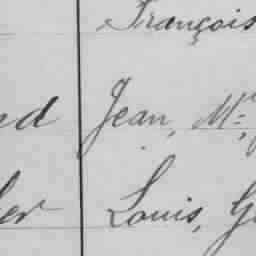 François
ed Jean, Mie
er Louis, G